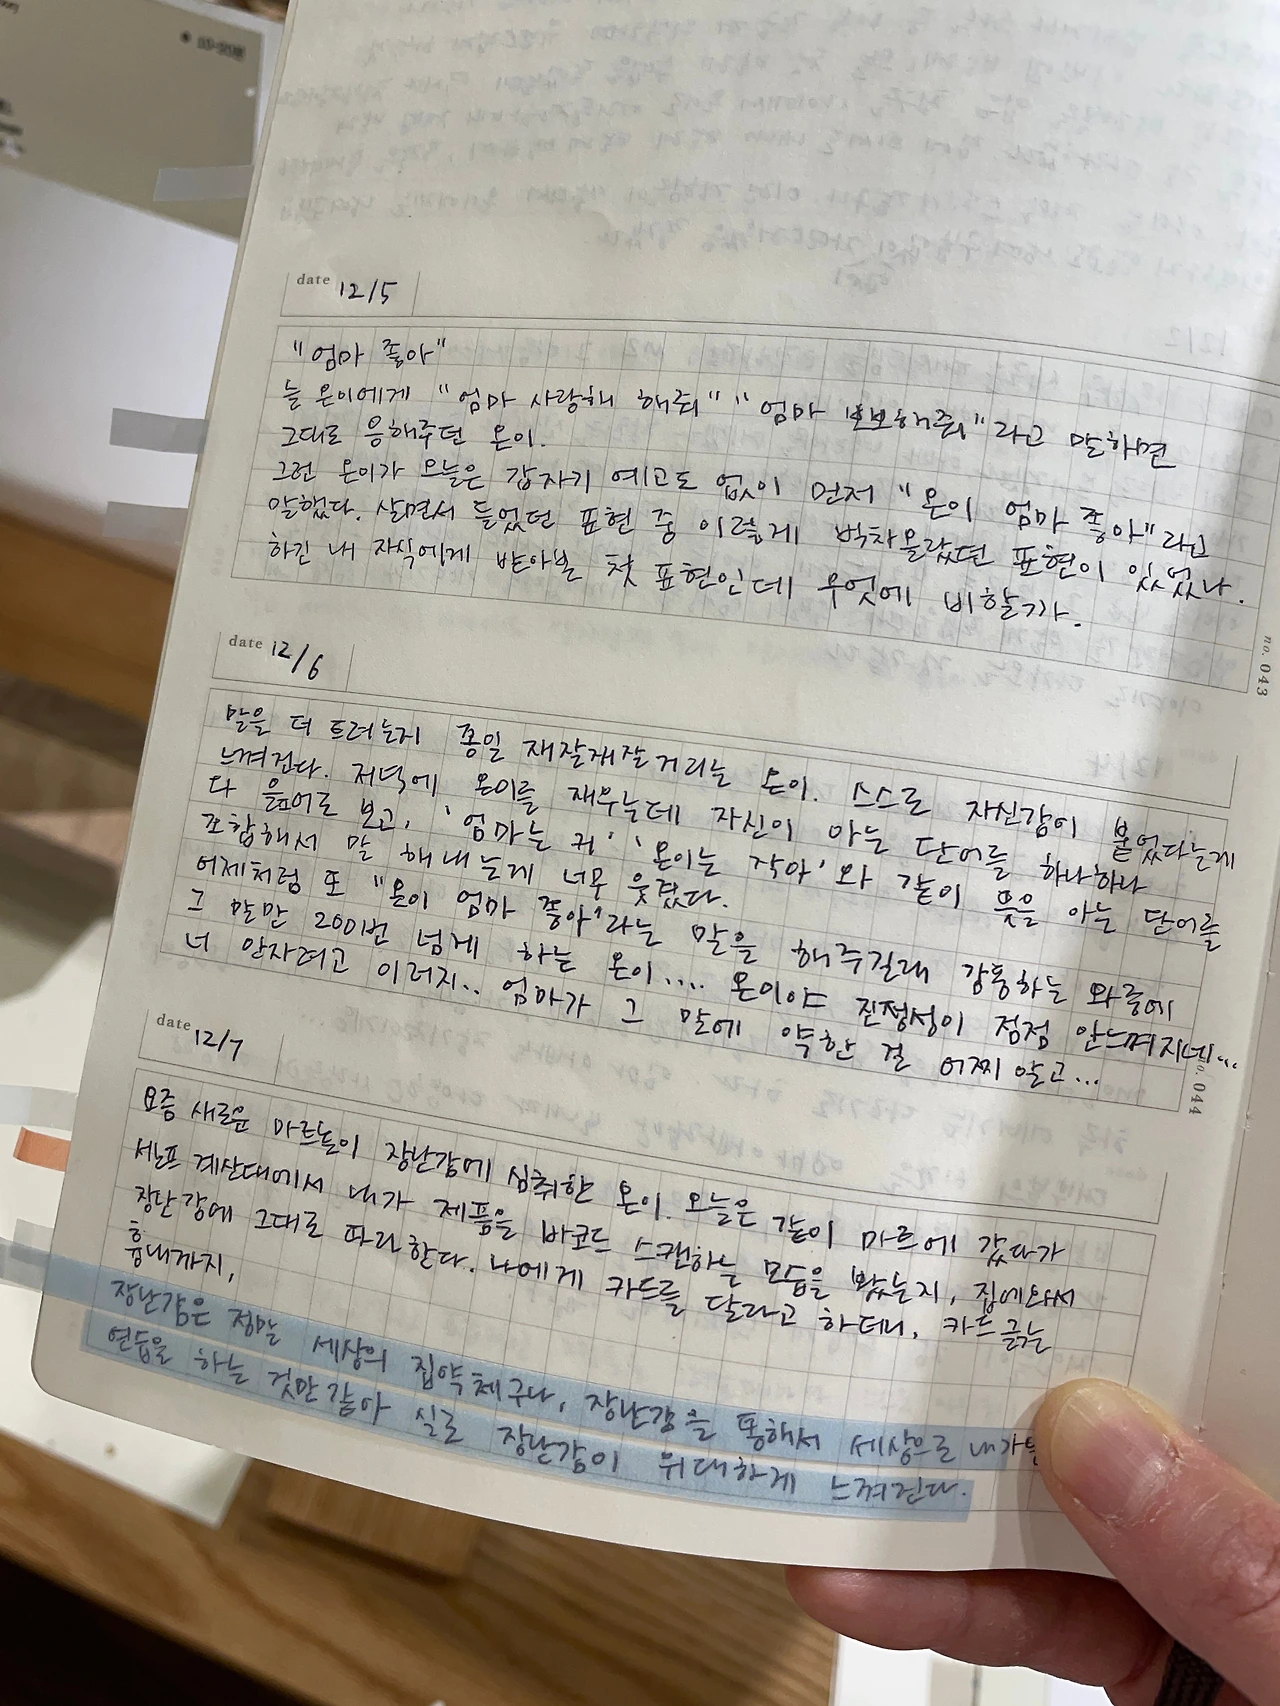 date 12/5
"엄마 좋아"
늘 온이에게 "엄마 사랑해 해줘" "엄마 뽀뽀해줘"라고 말하면
그대로 응해주던 온이.
그런 온이가 오늘은 갑자기 예고도 없이 먼저 "온이 엄마 좋아"라고
말했다. 살면서 들었던 표현 중 이렇게 벅차올랐던 표현이 있었나.
하긴 내 자식에게 받아본 첫 표현인데 무엇에 비할까.
no. 043
date 12/6
말을 더 트려는지 종일 재잘재잘거리는 온이. 스스로 자신감이 붙었다는게
느껴진다. 저녁에 온이를 재우는데 자신이 아는 단어를 하나하나
다 읊어로 보고, '엄마는 커' '온이는 작아'와 같이 뜻을 아는 단어를
조합해서 말 해내는게 너무 웃겼다.
어제처럼 또 "온이 엄마 좋아"라는 말을 해주길래 감동하는 와중에
그 말만 200번 넘게 하는 온이.... 온이야 진정성이 점점 안느껴지네...
너 안자려고 이러지.. 엄마가 그 말에 약한 걸 어찌 알고...
no. 044
date 12/7
요즘 새로운 마트놀이 장난감에 심취한 온이. 오늘은 같이 마트에 갔다가
셀프 계산대에서 내가 제품을 바코드 스캔하는 모습을 봤는지, 집에와서
장난감에 그대로 따라한다. 나에게 카드를 달라고 하더니, 카드 긁는
흉내까지,
장난감은 정말 세상의 집약체구나, 장난감을 통해서 세상으로 내가는
연습을 하는 것만 같아 실로 장난감이 위대하게 느껴진다.